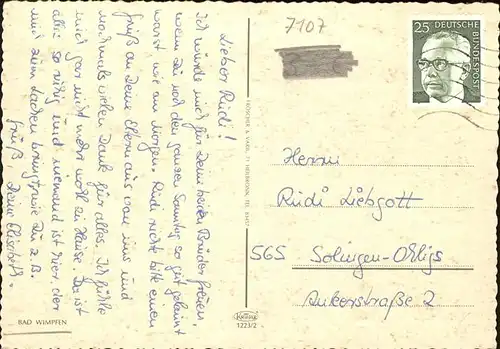 Lieber Rudi!
Ich würde mich für Deine beiden Brüder freuen,
wenn Du noch den ganzen Sonntag so gut gelaunt
warst, wie am Morgen. Rudi, richte bitte einen
Gruß an Deine Eltern aus von uns und
nochmals vielen Dank für alles. Ich fühle
mich gar nicht mehr wohl zu Hause. Da ist
alles so ruhig und niemand ist hier, der
mich zum Lachen bringt, wie Du z.B.
Gruß Deine Elisabeth.
BAD WIMPFEN
7107
25 DEUTSCHE BUNDESPOST
Herrn
Rudi Liebgott
565 Solingen-Ohligs
Ankerstraße 2
1223/2